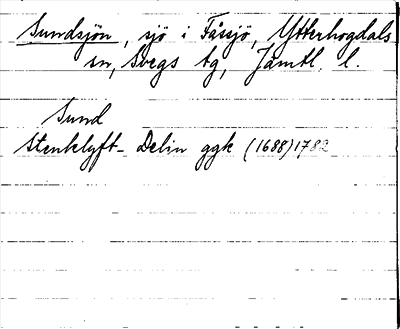 Sundsjön, sjö i Fåssjö, Ytterhogdals
sn, Svegs tg, Jämtl. l.
Sund
Stenklyft- Delin ggk (1688) 1782